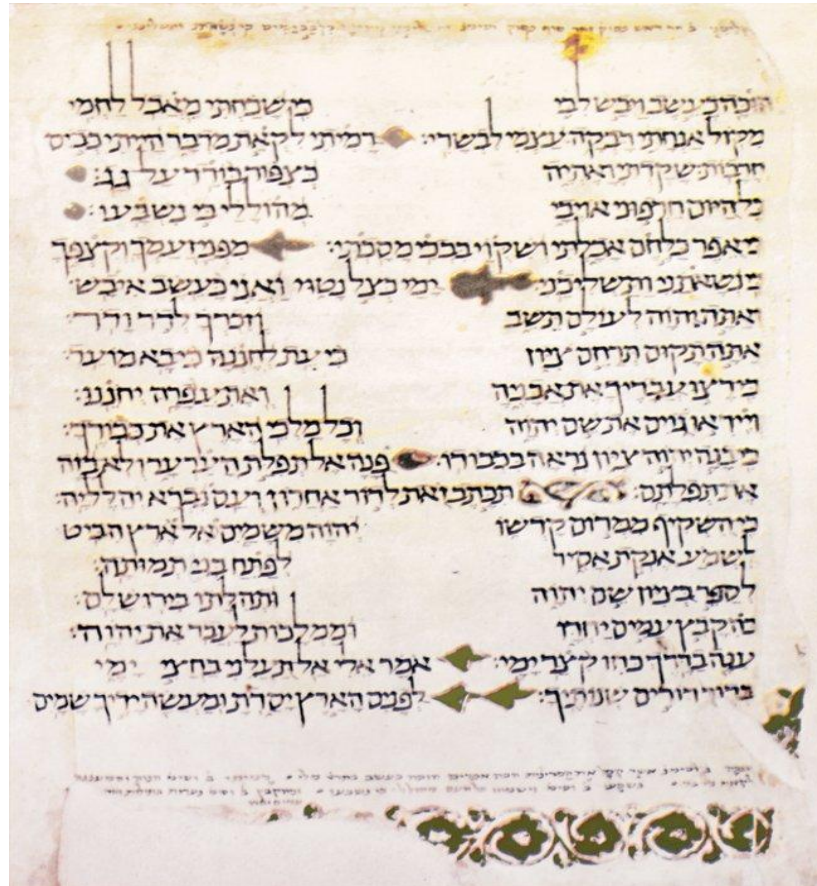 הוכה כעשב ויבש לבי כי שכחתי מאכל לחמי
מקול אנחתי דבקה עצמי לבשרי: דמיתי לקאת מדבר הייתי ככוס
חרבות שקדתי ואהיה כצפור בודד על גג:
כל היום חרפוני אויבי מהוללי בי נשבעו:
כי אפר כלחם אכלתי ושקוי בבכי מסכתי: מפני זעמך וקצפך
כי נשאתני ותשליכני: ימי כצל נטוי ואני כעשב איבש:
ואתה יהוה לעולם תשב וזכרך לדר ודר:
אתה תקום תרחם ציון כי עת לחננה כי בא מועד:
כי רצו עבדיך את אבניה ואת עפרה יחננו:
וייראו גוים את שם יהוה וכל מלכי הארץ את כבודך:
כי בנה יהוה ציון נראה בכבודו: פנה אל תפלת הערער ולא בזה
את תפלתם: תכתב זאת לדור אחרון ועם נברא יהלל יה:
כי השקיף ממרום קדשו יהוה משמים אל ארץ הביט
לשמע אנקת אסיר לפתח בני תמותה:
לספר בציון שם יהוה ותהלתו בירושלם:
בהקבץ עמים יחדו וממלכות לעבד את יהוה:
ענה בדרך כחו קצר ימי: אמר אלי אל תעלני בחצי ימי
בדור דורים שנותיך: לפנים הארץ יסדת ומעשה ידיך שמים